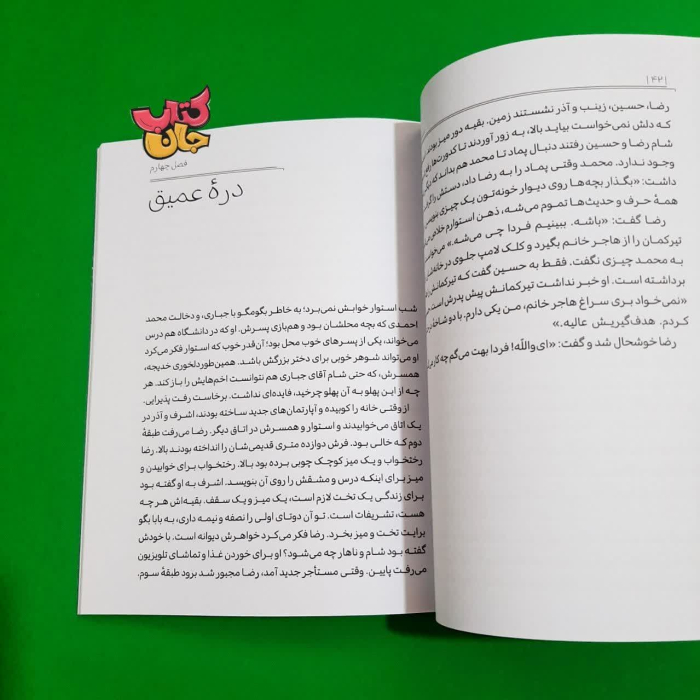 | ۴۲ |
رضا، حسین، زینب و آذر نشستند زمین. بقیه دور میز بودند
که دلش نمی‌خواست بیاید بالا، به زور آوردند تا کدورت‌ها
شام رضا و حسین رفتند دنبال پماد تا محمد هم بداند که
وجود ندارد. محمد وقتی پماد را به رضا داد، دستش را
داشت: «بگذار بچه‌ها روی دیوار خونه‌تون یک چیزی
همهٔ حرف و حدیث‌ها تموم می‌شه، ذهن استوارم
رضا گفت: «باشه. ببینیم فردا چی می‌شه.»
تیرکمان را از هاجر خانم بگیرد و کلک لامپ جلوی در
به محمد چیزی نگفت. فقط به حسین گفت که تیرکمانش
برداشته است. او خبر نداشت تیرکمانش پیش پدرش است
«نمی‌خواد بری سراغ هاجر خانم، من یکی دارم. با دو
کردم. هدف‌گیریش عالیه.»
رضا خوشحال شد و گفت: «ای‌والله! فردا بهت می‌گم چه‌کار
کتاب
جان
فصل چهارم
درهٔ عمیق
شب استوار خوابش نمی‌برد؛ به خاطر بگومگو با جباری، و دخالت محمد
احمدی که بچه محلشان بود و هم‌بازی پسرش. او که در دانشگاه هم درس
می‌خواند، یکی از پسرهای خوب محل بود؛ آن‌قدر خوب که استوار فکر می‌کرد
او می‌تواند شوهر خوبی برای دختر بزرگش باشد. همین‌طور دلخوری خدیجه،
همسرش، که حتی شام آقای جباری هم نتوانست اخم‌هایش را باز کند. هر
چه از این پهلو به آن پهلو چرخید، فایده‌ای نداشت. برخاست رفت پذیرایی.
از وقتی خانه را کوبیده و آپارتمان‌های جدید ساخته بودند، اشرف و آذر در
یک اتاق می‌خوابیدند و استوار و همسرش در اتاق دیگر. رضا می‌رفت طبقهٔ
دوم که خالی بود. فرش دوازده متری قدیمی‌شان را انداخته بودند بالا. رضا
رختخواب و یک میز کوچک چوبی برده بود بالا. رختخواب برای خوابیدن و
میز برای اینکه درس و مشقش را روی آن بنویسد. اشرف به او گفته بود
برای زندگی یک تخت لازم است، یک میز و یک سقف. بقیه‌اش هر چه
هست، تشریفات است. تو آن دوتای اولی را نصفه و نیمه داری، به بابا بگو
برایت تخت و میز بخرد. رضا فکر می‌کرد خواهرش دیوانه است. با خودش
گفته بود شام و ناهار چه می‌شود؟ او برای خوردن غذا و تماشای تلویزیون
می‌رفت پایین. وقتی مستأجر جدید آمد، رضا مجبور شد برود طبقهٔ سوم.